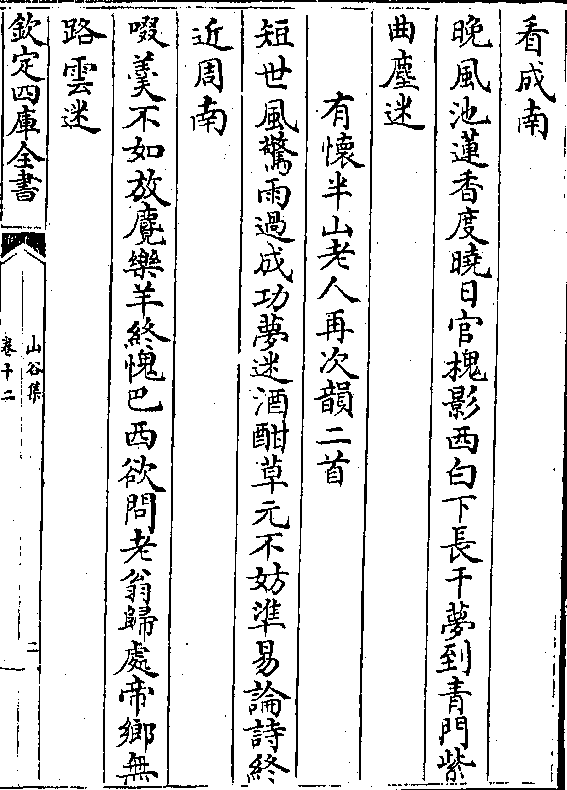 看成南
晚風池蓮香度曉日官槐影西白下長干夢到青門紫
曲塵迷
有懷半山老人再次韻二首
短世風驚雨過成功夢迷酒酣草元不妨準易論詩終
近周南
啜羹不如放麑樂羊終愧巴西欲問老翁歸處帝鄉無
路雲迷
欽定四庫全書
山谷集
卷十二
二